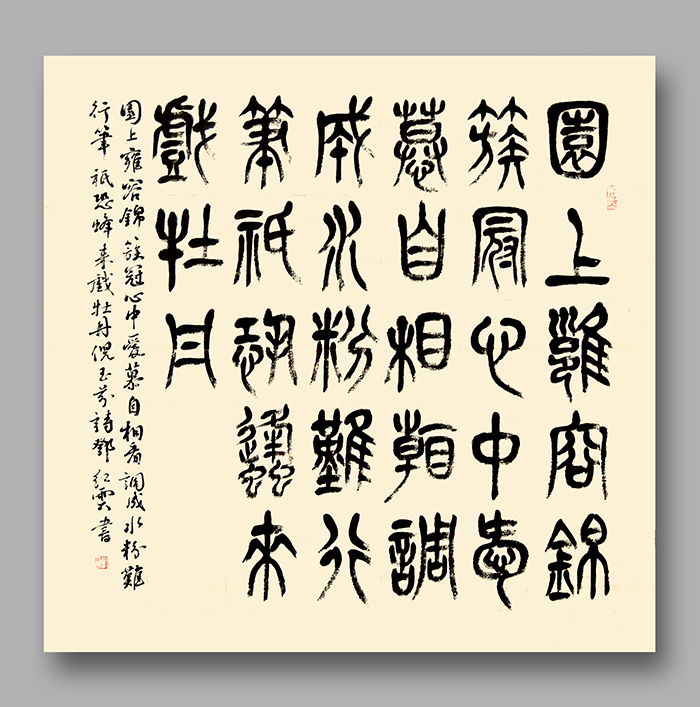 園上雍容錦
簇冠心中愛
慕自相看調
成水粉難行
筆祇恐蜂來
戲牡丹
園上雍容錦簇冠心中愛慕自相看調成水粉難
行筆祇恐蜂來戲牡丹倪玉芬詩鄧紅雲書